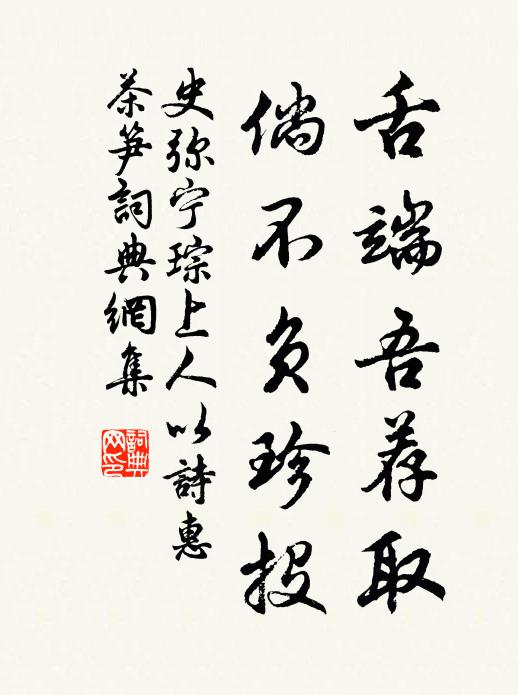 舌端吾荐取
倘不负珍投
史弥宁琮上人以詩惠
茶笋詞典網集
詞典
网印